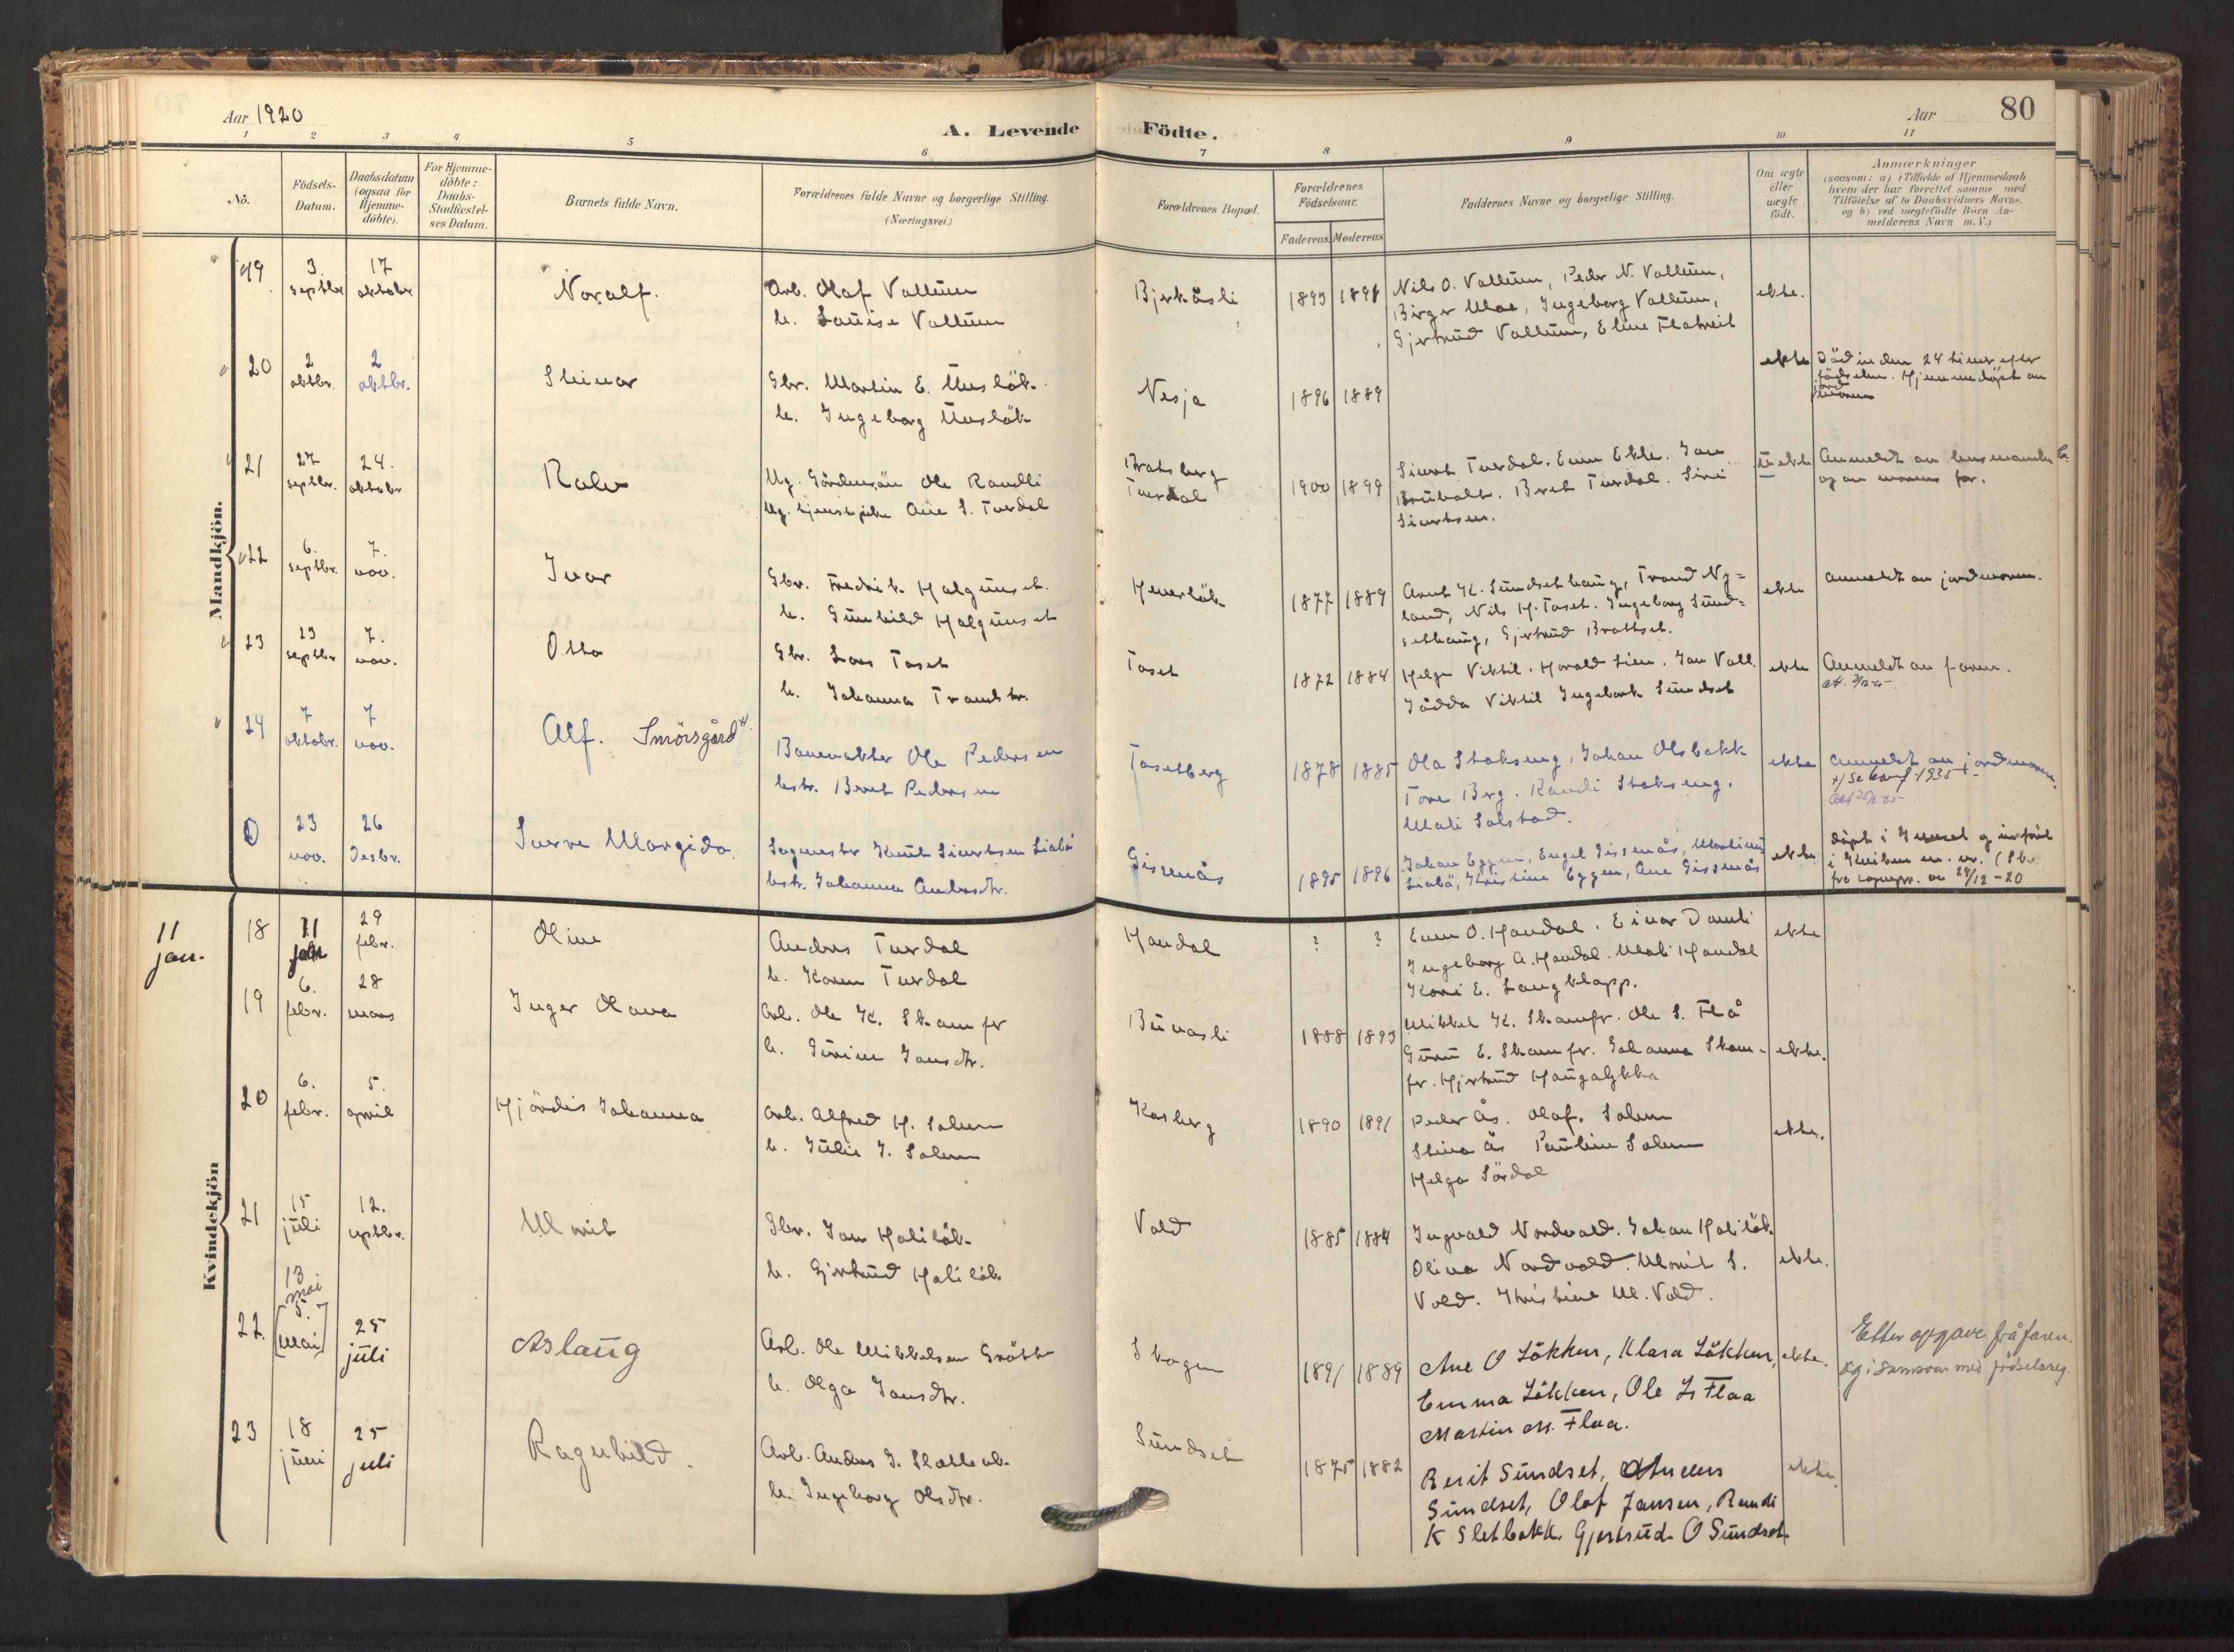 Aar 1920
A. Levende
Födte.
Aar
80
1 2 3 4 5 6 7 8 9 10 11
No.
Födsels-
Datum.
Daabsdatum
(ogsaa for
Hjemme-
döbte).
For Hjemme-
döbte:
Daabs-
Stadfæstel-
ses Datum.
Barnets fulde Navn.
Forældrenes fulde Navne og borgerlige Stilling.
(Næringsvei.)
Forældrenes Bopæl.
Forældrenes
Födselsaar.
Faderens. Moderens
Faddernes Navne og borgerlige Stilling.
Om ægte
eller
uægte
födt.
Anmærkninger
(saasom: a) i Tilfælde af Hjemmedaab
hvem der har forrettet samme med
Tilföielse af to Daabsvidners Navne.
og b) ved uægtefödte Börn An-
melderens Navn m.V.)
Mandkjön.
19
3.
septbr
17
oktobr
Noralf.
Arb. Olaf Vallum
h. Louise Vallum
Bjerkåsli
1893 1898
Nils O. Vallum, Peder N. Vallum,
Birger Moe, Ingeborg Vallum,
Gjertrud Vallum, Eline
ekte.
20
2
oktbr.
2
oktbr.
Steinar
Gbr. Martin E. Husløk
h. Ingeborg Husløk
Nesja
1896 1889
ekte
Död inden 24 timer efter
födselen. Hjemmedöpt av
jord
moren
21
27
septbr.
24.
oktober
Rolv
Ug. Ole Randli
Ug. tjenestepike Ane S. Turdal
Bratsberg
Turdal
1900 1899
Sivert Turdal. Even Ekle. Jon
Brubakk. Beret Turdal. Siri
Sivertsen.
uekte
Anmeldt av lensmanden
og av morens far.
22
6.
septbr.
7.
nov.
Ivar
Gbr. Fredrik Halgunset.
h. Gunhild Halgunset
Henslök
1877 1889
Arnt K. Sundsethaug, Trond Ny=
land, Nils H. Toset. Ingeborg Sund=
sethaug, Gjertrud Brattset.
ekte
anmeldt av jordmoren.
23
23
septbr
7.
nov.
Otto
Gbr. Lars Toset
h. Johanna Trondsdr.
Toset
1872 1884
Helge Viktil. Harald Lien. Jon Voll.
Jådda Viktil Ingeborg Sundset
ekte
Anmeldt av faren.
24
7
oktobr.
7
nov.
Alf. Smörsgård x)
Banevakter Ole Pedersen
hstr. Beret Pedersen
Tosetberg
1878 1885
Ola Stokseng, Johan Olsbakk
Tore Berg. Randi Stokseng.
Mali Solstad.
ekte
anmeldt av jordmoren.
0
23
nov.
26
Desbr.
Sverre Margido.
Sagmester Knut Sivertsen Liabö
hstr. Johanna Andersdtr.
Gisnås
1895 1896
Johan Eggen, Engel Gisnås, Martinus
Liabö, Kristine Eggen, Ane Gisnås
ekte
döpt i Innset og infört
fra sognepr. av 29/12-20
Kvindekjön
11
jan.
18
11
29
febr.
Oline
Anders Turdal
h. Karen Turdal
Haudal
? ?
Even O. Haudal. Einar Damli
Ingeborg A. Haudal. Mali Haudal
Kari E. Langklapp.
ekte
19
6.
febr.
28
mars
Inger Olava
Arb. Ole K. Skamfer
h. Gurine Jonsdtr.
Buvasli
1888 1893
Mikkel K. Skamfr. Ole S. Flå
Guru E. Skamfr. Johanna Skam-
fr. Hjertrud Haugalykkja
ekte.
20
6.
febr.
5.
april
Hjördis Johanna
Arb. Alfred H. Solem
h. Julie J. Solem
Kasberg
1890 1891
Peder Ås. Olaf. Solem
Stina Ås Pauline Solem
Helga Sördal
ekte.
21
15
juli
12.
septbr.
Marit
Gbr. Jon Haliløk
h. Gjertrud Haliløk
Vold
1885 1884
Ingvald Nordvold. Johan Haliløk.
Olina Nordvold. Marit S.
Vold. Kristine M. Vold.
ekte.
22.
13
mai
[5.
Mai]
25
juli
Aslaug
Arb. Ole Mikkelsen Gråtte
h. Olga Jonsdtr.
Skogen
1891 1889
Ane O Lökken, Klara Lökken,
Emma Lökken, Ole Ls Flaa
Martin M. Flaa.
ekte.
Etter oppgave frå faren.
og i samsvar med födselsreg.
23
18
juni
25
juli
Ragnhild.
Arb. Anders J. Slettbak.
h. Ingeborg Olsdtr.
Sundset
1875 1882
Berit Sundset, Anders
Sundset, Olaf Jansen, Randi
K Sletbakk. Gjertrud O Sundset.
ekte.